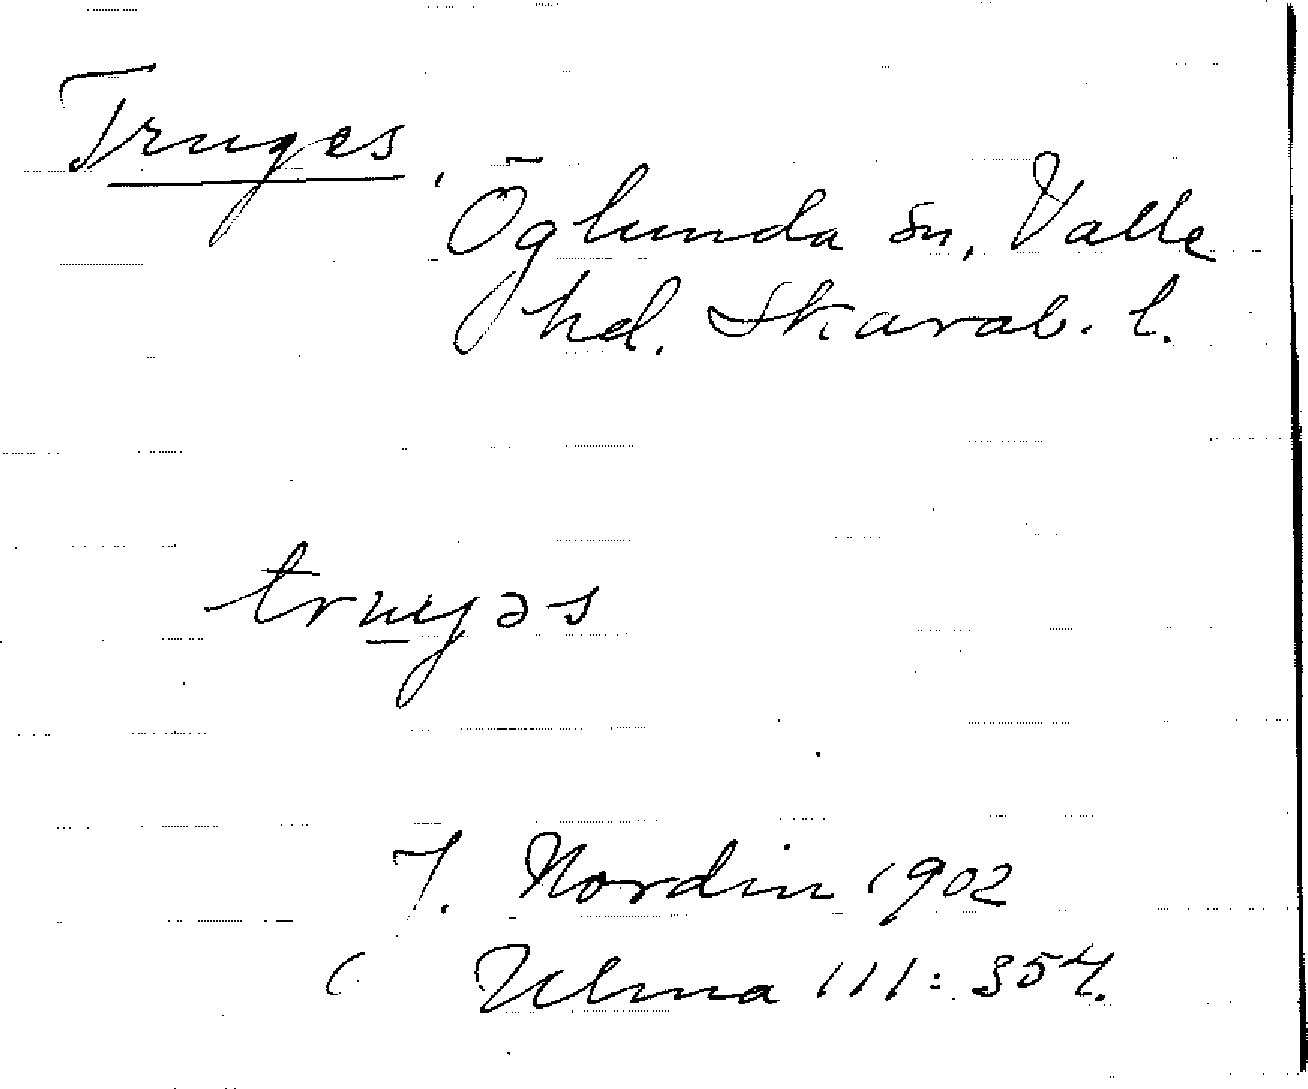 Truges,
Öglunda sn, Valle
hd. Skarab. l.
trugəs
T. Nordin 1902
( Ulma 111: 354.